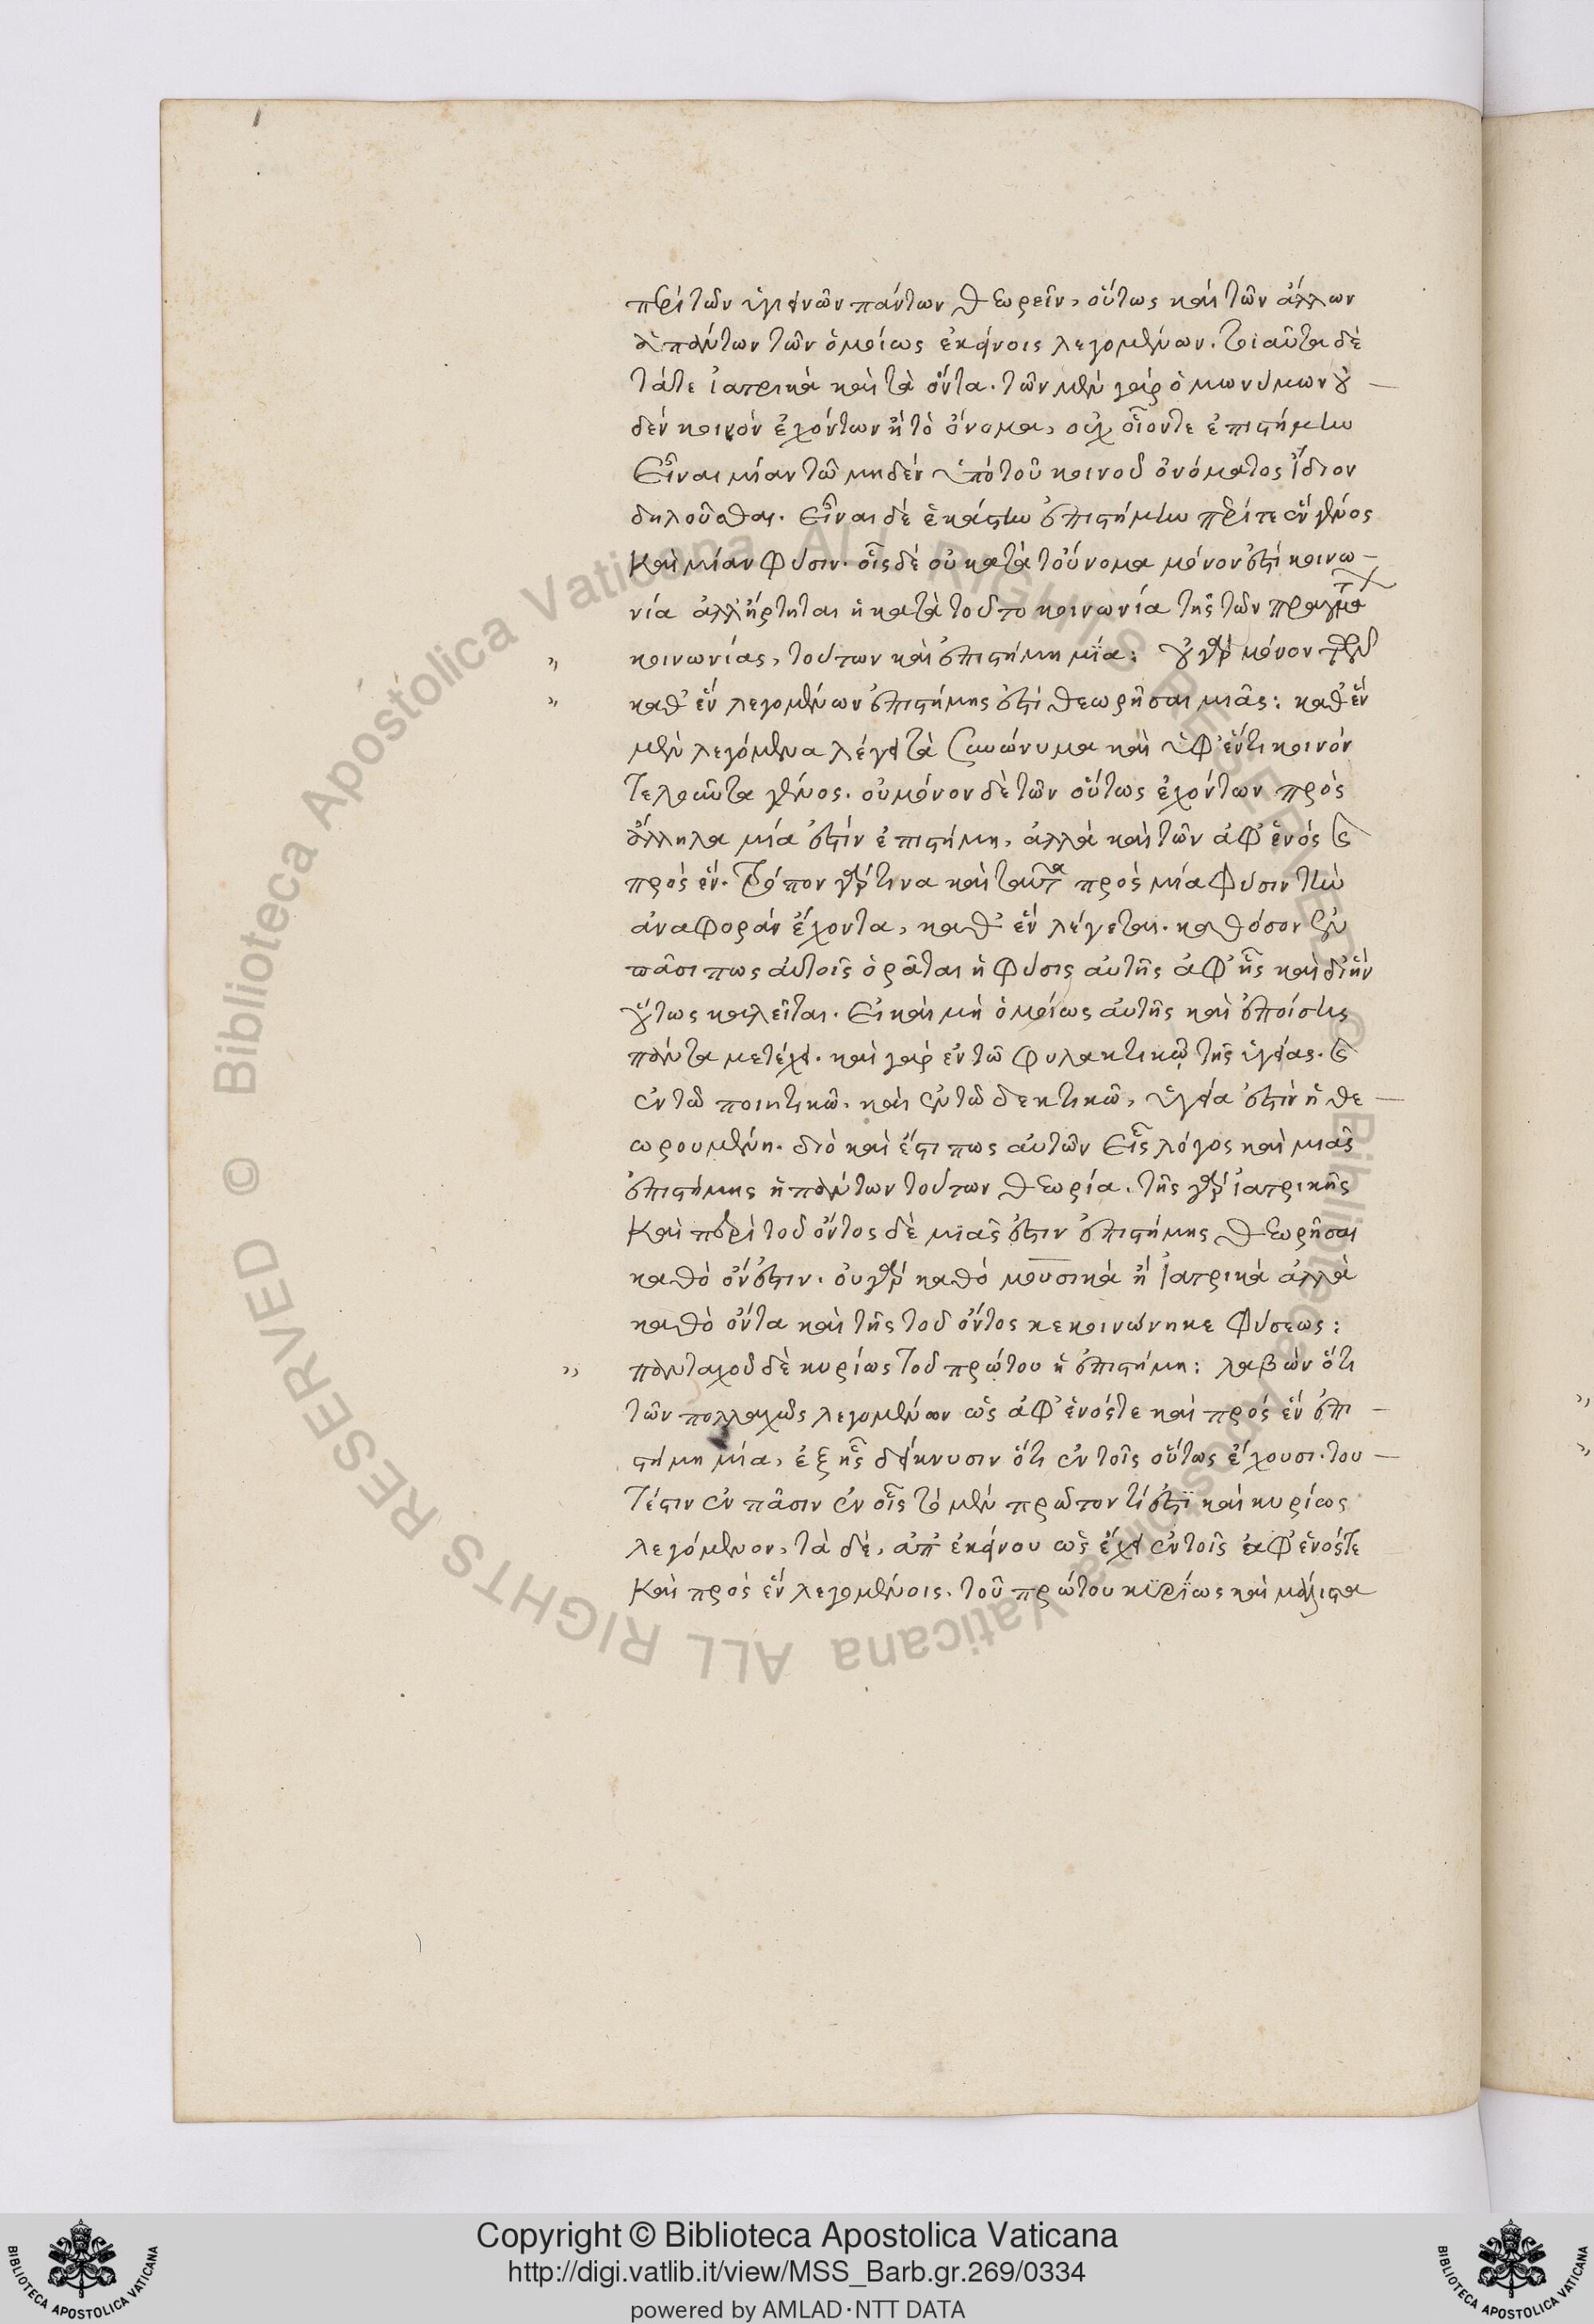 περὶ τῶν ὑγιεινῶν πάντων θεωρεῖν, οὕτως καὶ τῶν ἄλλων
ἁπάντων τῶν ὁμοίως ἐκείνοις λεγομένων. τοιαῦτα δὲ
τάτε ἰατρικὰ καὶ τὰ ὄντα. τῶν μὲν γὰρ ὁμωνύμων οὐ
δὲν κοινὸν ἐχόντων ἢ τὸ ὄνομα, οὐχ οἷόντε ἐπιστήμην
Εἶναι μίαν τῶ μηδὲν ὑπὸ τοῦ κοινοῦ ὀνόματος ἴδιον
δηλοῦσθαι. Εἶναι δὲ ἑκάστην ἐπιστήμην περί τε ἓν γένος
Καὶ μίαν φύσιν. οἷς δὲ οὐ κατὰ τοὔνομα μόνον ἐστὶ κοινω
νία ἀλλ' ἤρτηται ἡ κατὰ τοῦτο κοινωνία τῆς τῶν πραγμάτων
κοινωνίας, τούτων καὶ ἐπιστήμη μία: οὐ γὰρ μόνον περὶ τῶν
καθ' ἓν λεγομένων ἐπιστήμης ἐστὶ θεωρῆσαι μιᾶς: καθ' ἓν
μὲν λεγόμενα λέγει τὰ συνώνυμα καὶ ὑφ' ἕν τι κοινὸν
Τελοῦντα γένος. οὐ μόνον δὲ τῶν οὕτως ἐχόντων πρὸς
ἄλληλα μία ἐστὶν ἐπιστήμη, ἀλλὰ καὶ τῶν ἀφ' ἑνὸς καὶ
πρὸς ἕν. Τρόπον γάρ τινα καὶ ταῦτα πρὸς μία φύσιν τὴν
ἀναφορὰν ἔχοντα, καθ' ἓν λέγεται. καθόσον ἐν
πᾶσι πως αὐτοῖς ὁρᾶται ἡ φύσις αὐτῆς ἀφ' ἧς καὶ δι' ἣν
οὕτως καλεῖται. Εἰ καὶ μὴ ὁμοίως αὐτῆς καὶ ἐπίσης
πάντα μετέχει. καὶ γὰρ ἐν τῶ φυλακτικῷ τῆς ὑγείας. καὶ
ἐν τῶ ποιητικῶ. καὶ ἐν τῶ δεκτικῶ, ὑγεία ἐστὶν ἡ θε
ωρουμένη. διὸ καὶ ἔστι πως αὐτῶν Εἷς λόγος καὶ μιᾶς
ἐπιστήμης ἡ πάντων τούτων θεωρία. τῆς γὰρ ἰατρικῆς
Καὶ περὶ τοῦ ὄντος δὲ μιᾶς ἐστιν ἐπιστήμης θεωρῆσαι
καθὸ ὄν ἐστιν. οὐ γὰρ καθὸ μουσικὰ ἢ ἰατρικὰ ἀλλὰ
καθὸ ὄντα καὶ τῆς τοῦ ὄντος κεκοινώνηκε φύσεως:
πανταχοῦ δὲ κυρίως τοῦ πρώτου ἡ ἐπιστήμη: λαβὼν ὅτι
τῶν πολλαχῶς λεγομένων ὡς ἀφ' ἑνός τε καὶ πρὸς ἓν ἐπι
στήμη μία, ἑξῆς δείκνυσιν ὅτι ἐν τοῖς οὕτως ἔχουσι. του
Τέστιν ἐν πᾶσιν ἐν οἷς τὸ μὲν πρῶτον τί ἐστὶ καὶ κυρίως
λεγόμενον, τὰ δὲ, ἀπ' ἐκείνου ὡς ἔχει ἐν τοῖς ἀφ' ἑνός τε
Καὶ πρὸς ἓν λεγομένοις. τοῦ πρώτου κυρίως καὶ μάλιστα